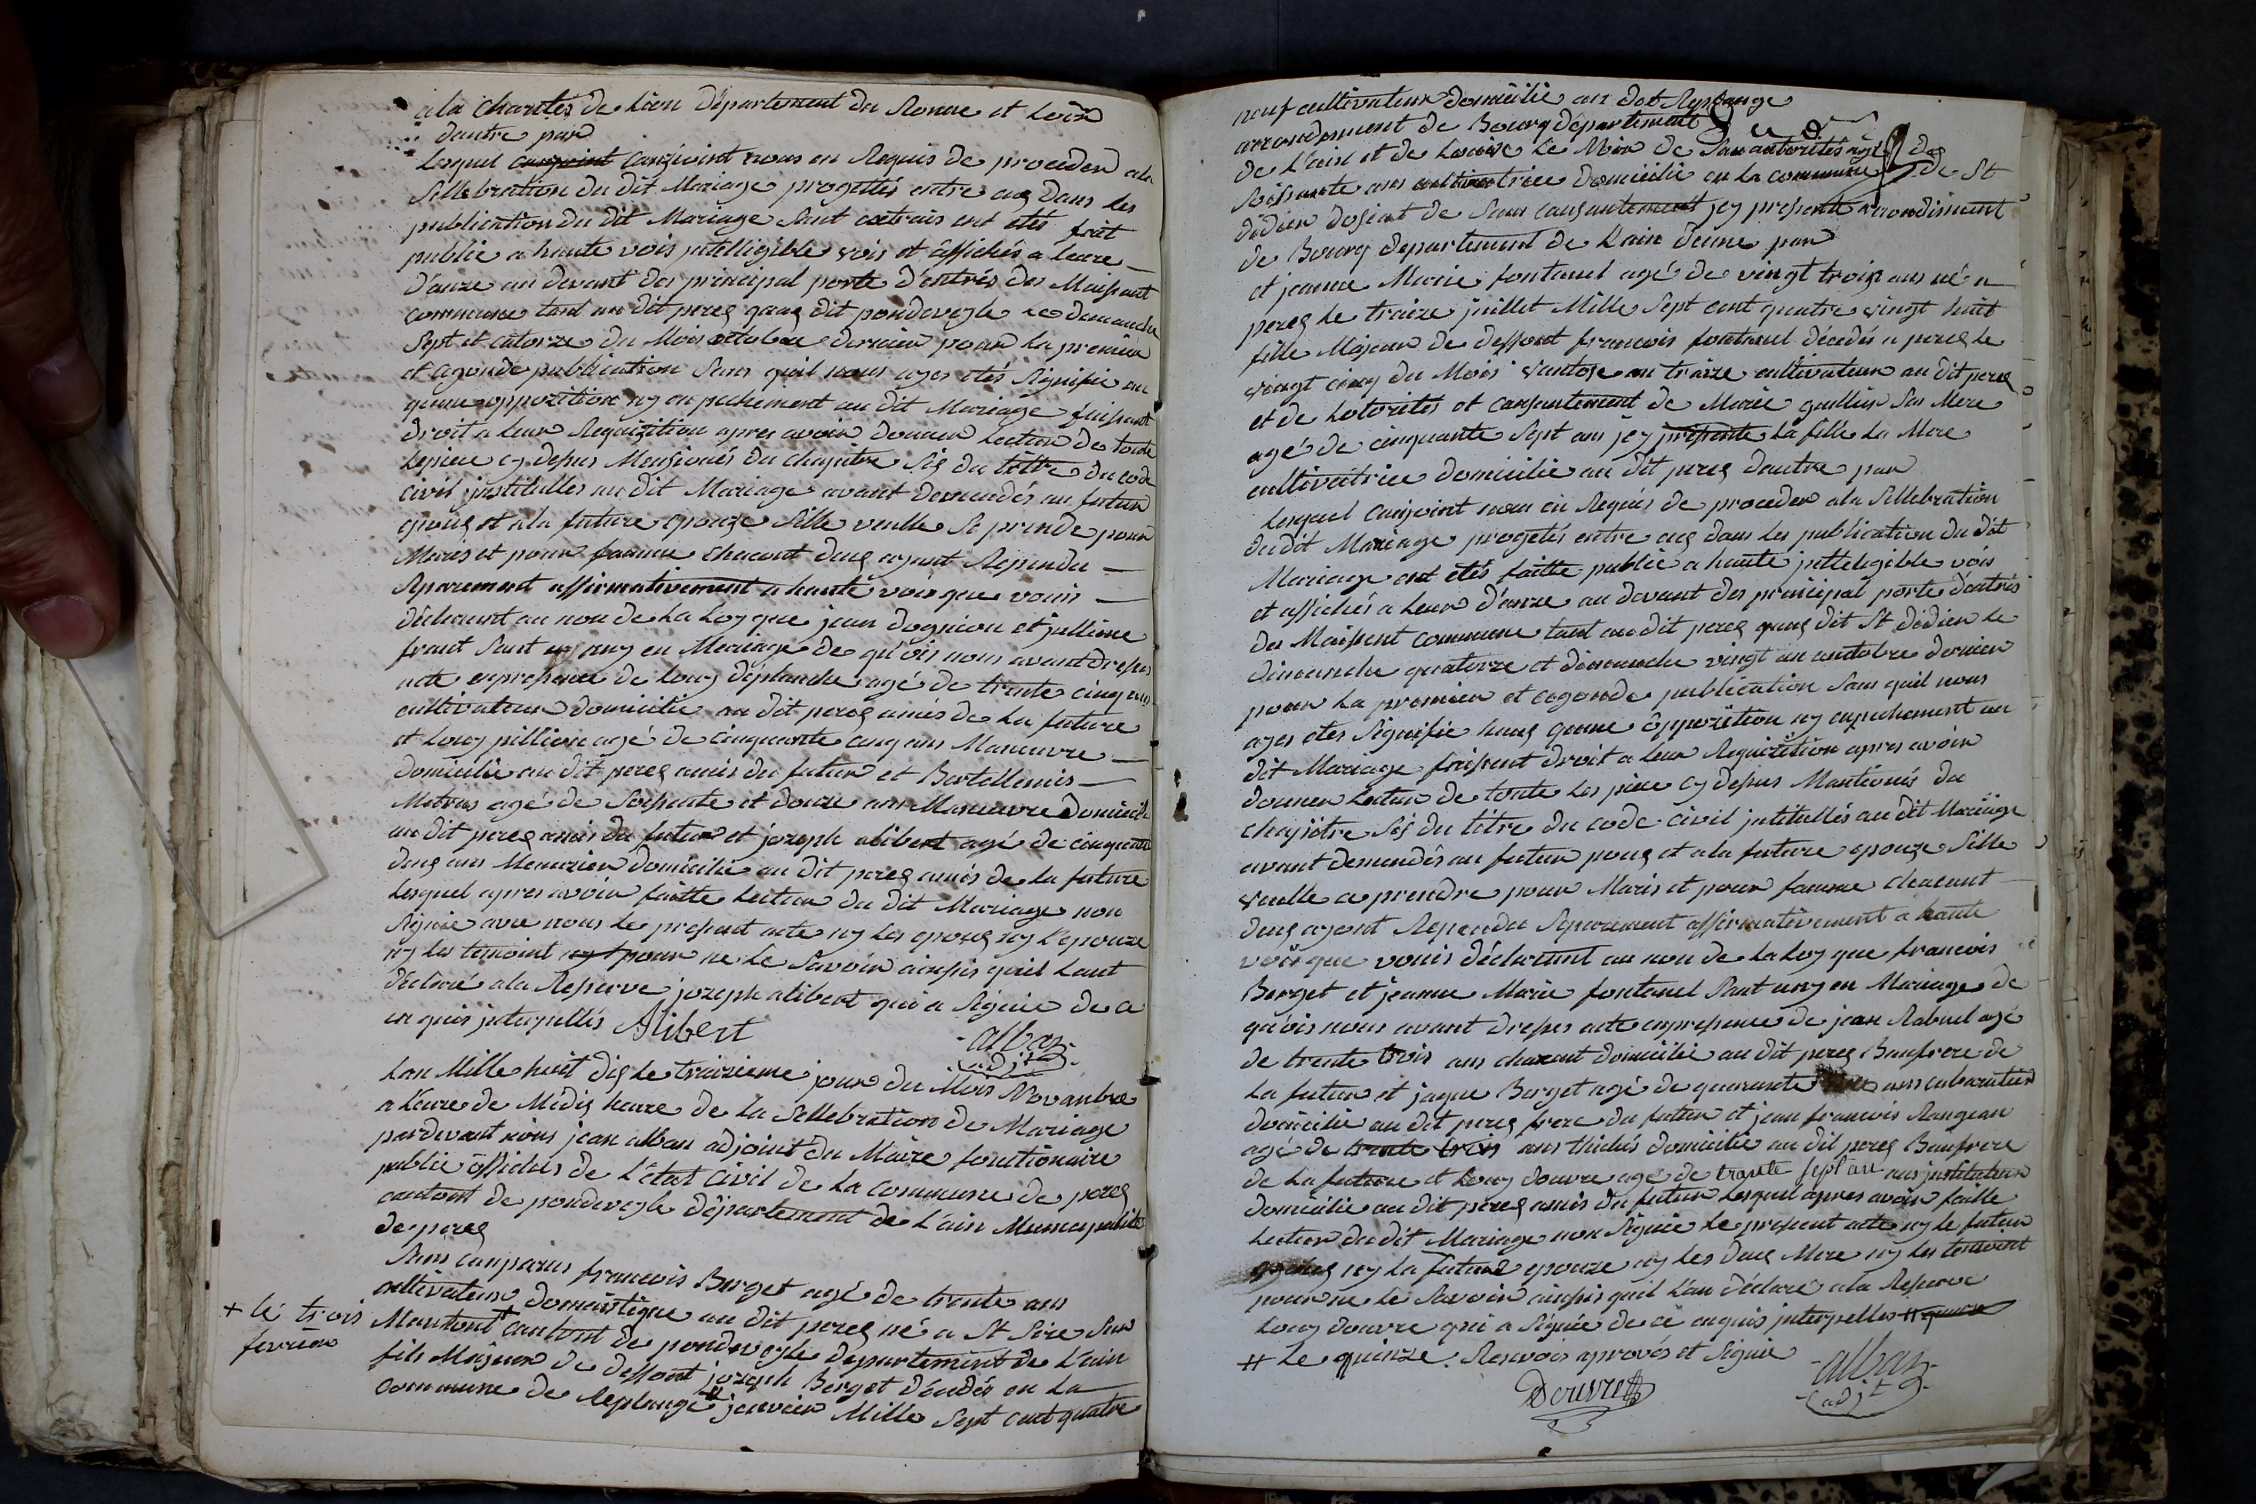 a la Charités de Lion Département du Ronne et Loire
dautre par
Lesquel conjoint nous en Requis de proceder ala
Sellebration du dit Mariage progettés entre aux Dans les
publication du dit Mariage Sont extrais ont etés fait
publie a haute vois jntelligible vois et affichés a leure
d'onze au devant des principal porte d'entrés des Maisont
commune tant au dit perex quaux dit pondeveyle Le dimanche
Sept et catorze du Mois octobre dernier pour la premiere
et segonde publication Sans quil nous ayes etés Signifie au
qunne oppozition ny en pechement au dit Mariage faissant
droit a leur Requizition apres avoir donner Lecture de toute
Lepiece cy depus Mensionés du chapitre Sis du tittre du code
civil jntitulles au dit Mariage avant demendés au futur
epoux et ala future epouze Sille veulle Se prendre pour
Maris et pour famme chacunt deux ayant Reponda
Separement affirmativement a haute vois que vouis
déclarent au non de la Loy que jean dognion et jullinne
frant Sont uny en Mariage de qu'ois nous avant dresses
acte enpresence de Louy déplanche agé de trante cinq ans
cultivateur domicilie au dit perex amis de La future
et Louy pillion agé de cinquante cinq ans Maneuvre
domicilie au dit perex amis du futur et Bartellemis
Matras agé de Soisente et douze ans Maneuvre domicilie
au dit perex amis du futur et jozeph alibert agé de cinquante
deux ans Menuzier domicilie au dit perex amis de la future
Lesquel apres avoir faitte Lecture du dit Mariage non
Signie avec nous le present acte ny Les epoux ny L'epouze
ny les temoint pour ne le Savoir ainssis quil Lont
déclaré ala Reserve jozeph alibert qui a Signie de ce
en quis jnterpellés Alibert
alban
adjt
Lan Mille huit dix le traizieme jour du Mois Novanbre
a Leure de Midis heure de la Sellebration de Mariage
pardevant nous jean alban adjoint du Maire fonctionaire
public officiers de L'état Civil de La Commune de perex
cantont de pondeveyle département de L'ain Municipalité
de perex
Sons conparus francois Berget agé de trente ans
cultivateur domaistique au dit perex né a St Sire Sur
+ le trois
fevrier
Mantont cantont de pondeveyle departement de L'ain
fils Majeur de deffont jozeph Berget décédés en la
commune de Replonge janvier Mille Sept cent quatre
neuf cultivateur domicilie au dot Replonge
arrondisment de Bourg département
de L'ain et de Louise Le Moin de Son autorités agé de
Soissante ans cultivatrice domicilie en la commune de St
didien dosiat de Sous consantement jcy presente arondisment
de Bourg departement de L'ain dunne par
et jeanne Marie fontanel agé de vingt troix ans né a
perex Le traize juillet Mille Sept cent quatre vingt huit
fille Majeur de deffont francois fontanel décédés a perex le
vingt cinq du Mois Vantose an traize cultivateur au dit perex
et de Lotorités et consantement de Marie guillin Sa Mere
agé de cinquante Sept ans jcy presente La fille La Mere
cultivatrice domicilie au dit perex dautre par
Lesquel conjoint nous en Requis de proceder ala Sellebration
du dit Mariage progetés entre aux dans les publication du dit
Mariage ont etés faitte publie a haute jntteligible vois
et affichés a leure d'onze au devant des principal porte d'entrés
des Maissont Commune tant au dit perex quaux dit St didien Le
dimanche quatorze et dimanche vingt un auctobre dernier
pour la premier et cegonde publication Sans quil nous
ayes etes Signifie haux qunne oppozition ny enpechement au
dit Mariage faissent droit a leur Requizition apres avoir
donner Lecture de toute Les piece cy depus Mantionés du
chapitre Sis du titre du code civil jntitullés au dit Mariage
avant demendés au futur epoux et ala future epouze Sille
veulle ce prendre pour Maris et pour famme chacunt
deux ayent Reponda Separement affirmativement a haute
vois que vouis déclarent au non de la Loy que francois
Berget et jeanne Marie fontanel Sont uny en Mariage de
qu'ois nous avant dresses acte enpresence de jean Rabuel agé
de trente trois ans charent domicilie au dit perex Beaufrere de
La future et jaque Berget agé de quarante ans cabaratier
domicilie au dit perex frere du futur et jean francois Rongean
agé de trante trois ans domicilie au dit perex Beaufrere
de La future et Louy douvre agé de trante Sept ans jnstituteur
domicilie au dit perex amis du futur Lesquel apres avoir faitte
Lecture du dit Mariage non Signie le present acte ny le futur
epoux ny La future epouze ny Les deux Mere ny les temoint
pour ne Le Savoir ainssis quil L'on déclare ala Reserve
Louy douvre qui a Signie de ce enquis jnterpelles
# Le quinze. Renvois aprovés et Signie
Douvre
alban
adjt